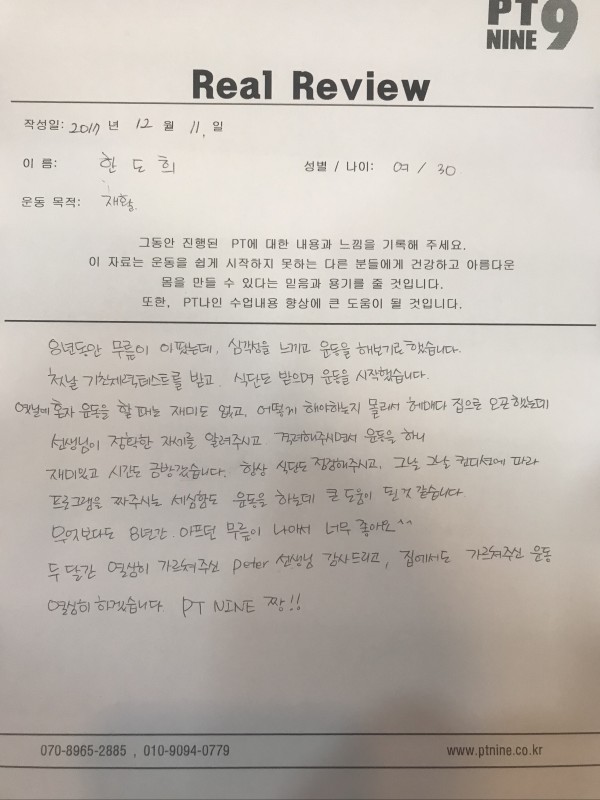 PT
NINE 9
Real Review
작성일: 2017 년 12 월 11, 일
이 름: 한 도 희
성별 / 나이: 여 / 30
운동 목적: 재활.
그동안 진행된 PT에 대한 내용과 느낌을 기록해 주세요.
이 자료는 운동을 쉽게 시작하지 못하는 다른 분들에게 건강하고 아름다운
몸을 만들 수 있다는 믿음과 용기를 줄 것입니다.
또한, PT나인 수업내용 향상에 큰 도움이 될 것입니다.
8년동안 무릎이 아팠는데, 심각성을 느끼고 운동을 해보기로 했습니다.
첫날 기초체력테스트를 받고, 식단도 받으며 운동을 시작했습니다.
옛날에 혼자 운동을 할 때는 재미도 없고, 어떻게 해야하는지 몰라서 헤매다 집으로 오곤 했는데
선생님이 정확한 자세를 알려주시고 격려해주시면서 운동을 하니
재미있고 시간도 금방갔습니다. 항상 식단도 점검해주시고, 그날 그날 컨디션에 따라
프로그램을 짜주시는 세심함도 운동을 하는데 큰 도움이 된것 같습니다.
무엇보다도 8년간 아프던 무릎이 나아서 너무 좋아요^^
두 달간 열심히 가르쳐주신 Peter 선생님 감사드리고, 집에서도 가르쳐주신 운동
열심히 하겠습니다 PT NINE 짱!!
070-8965-2885 , 010-9094-0779
www.ptnine.co.kr